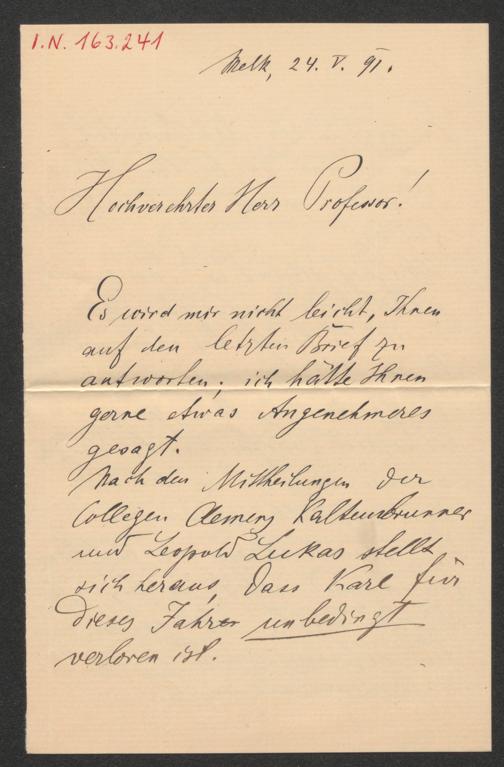 I.N. 163.241
Melk, 24. V. 91.
Hochverehrter Herr Professor!
Es wird mir nicht leicht, Ihnen
auf den letzten Brief zu
antworten; ich hätte Ihnen
gerne etwas Angenehmeres
gesagt.
Nach den Mittheilungen der
Collegen Clemens Kaltenbrunner
und Leopold Lukas stellt
sich heraus, dass Karl für
dieses Jahr unbedingt
verloren ist.